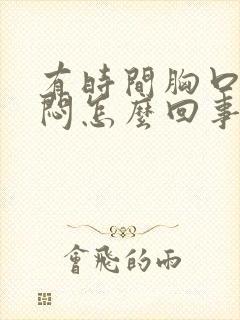 有時間胸口
悶怎麼回事
會飛的雨